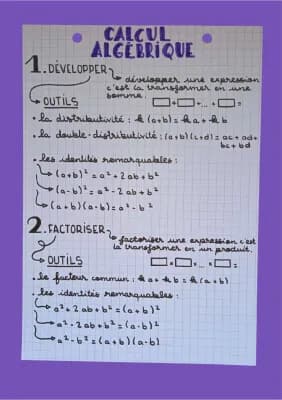 CALCUL
ALGÉBRIQUE
1. DÉVELOPPER
développer une expression
c'est la transformer en une
somme. □+□+...+□=
OUTILS
• la distributivité : k(a+b)=ka+kb
• la double-distributivité : (a+b)(c+d)=ac+ad+
bc+bd
• les identités remarquables :
(a+b)²=a²+2ab+b²
(a-b)²=a²-2ab+b²
(a+b)(a-b)=a²-b²
2. FACTORISER
factoriser une expression c'est
la transformer en un produit.
□×□×...×□=
OUTILS
• le facteur commun : ka+kb=k(a+b)
• les identités remarquables :
a²+2ab+b²=(a+b)²
a²-2ab+b²=(a-b)²
a²-b²=(a+b)(a-b)